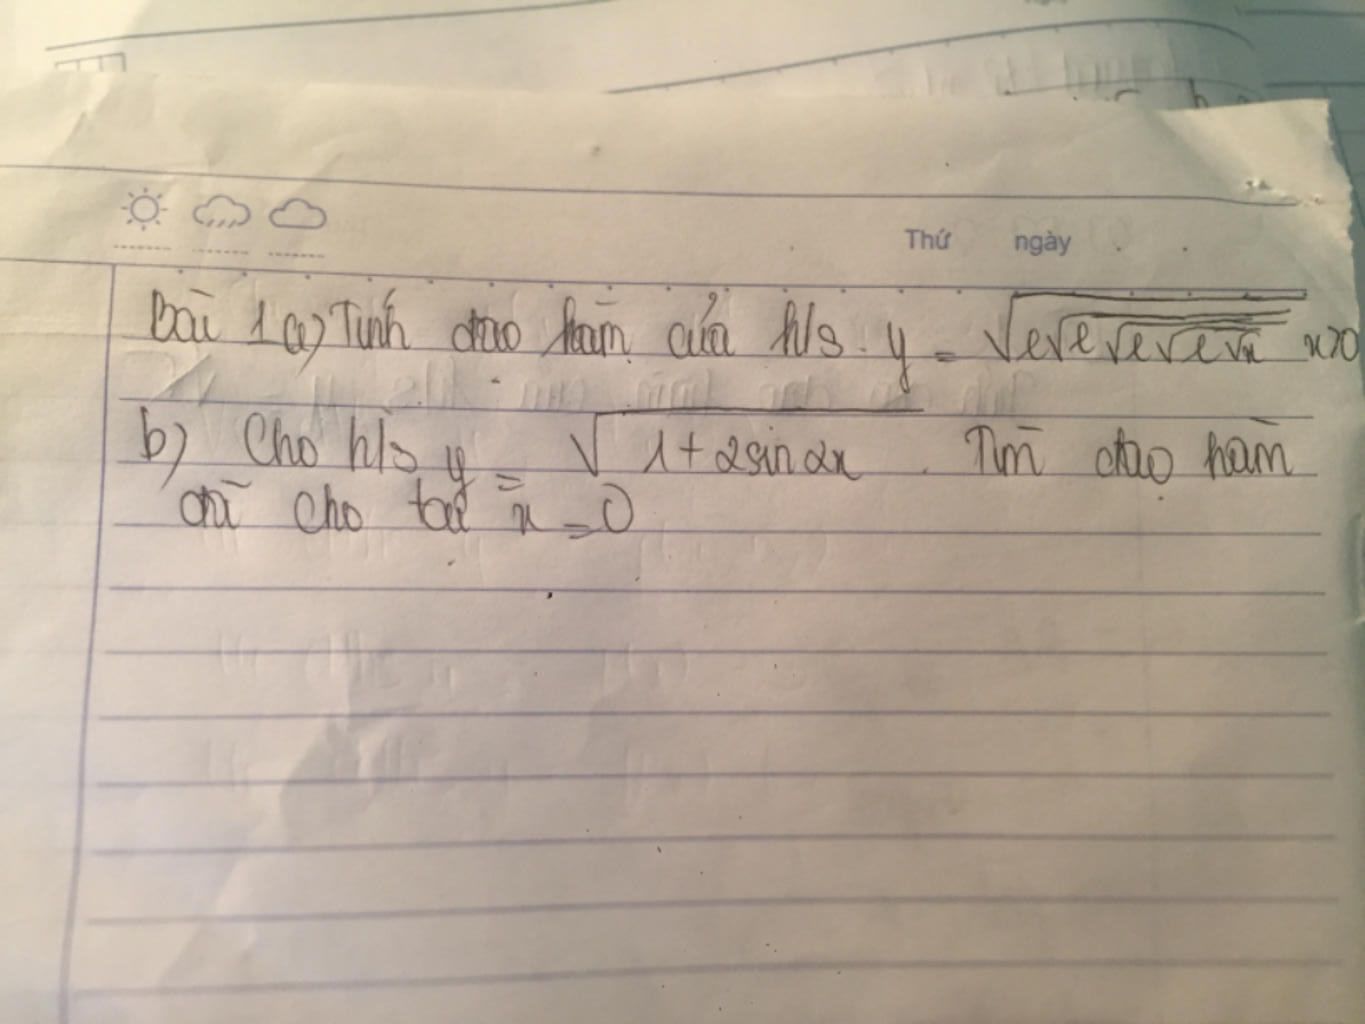 Thứ ngày
Bài 1 a) Tính đạo hàm của h/s. y = √e√e√e√e√x x>0
b) Cho h/s y = √1+2sin2x. Tìm đạo hàm
đã cho tại x = 0